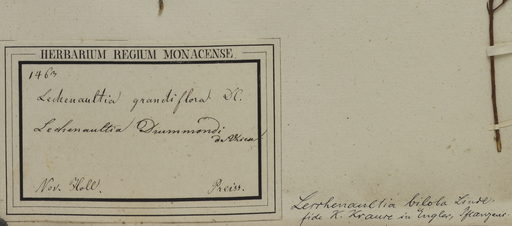 HERBARIUM REGIUM MONACENSE
1463
Lechenaultia grandiflora DC.
Lechenaultia Drummondi
de Vriese
Nov. Holl. Preiss.
Leschenaultia biloba Lindl.
fide K. Krause in Engler, Pflanzenr.